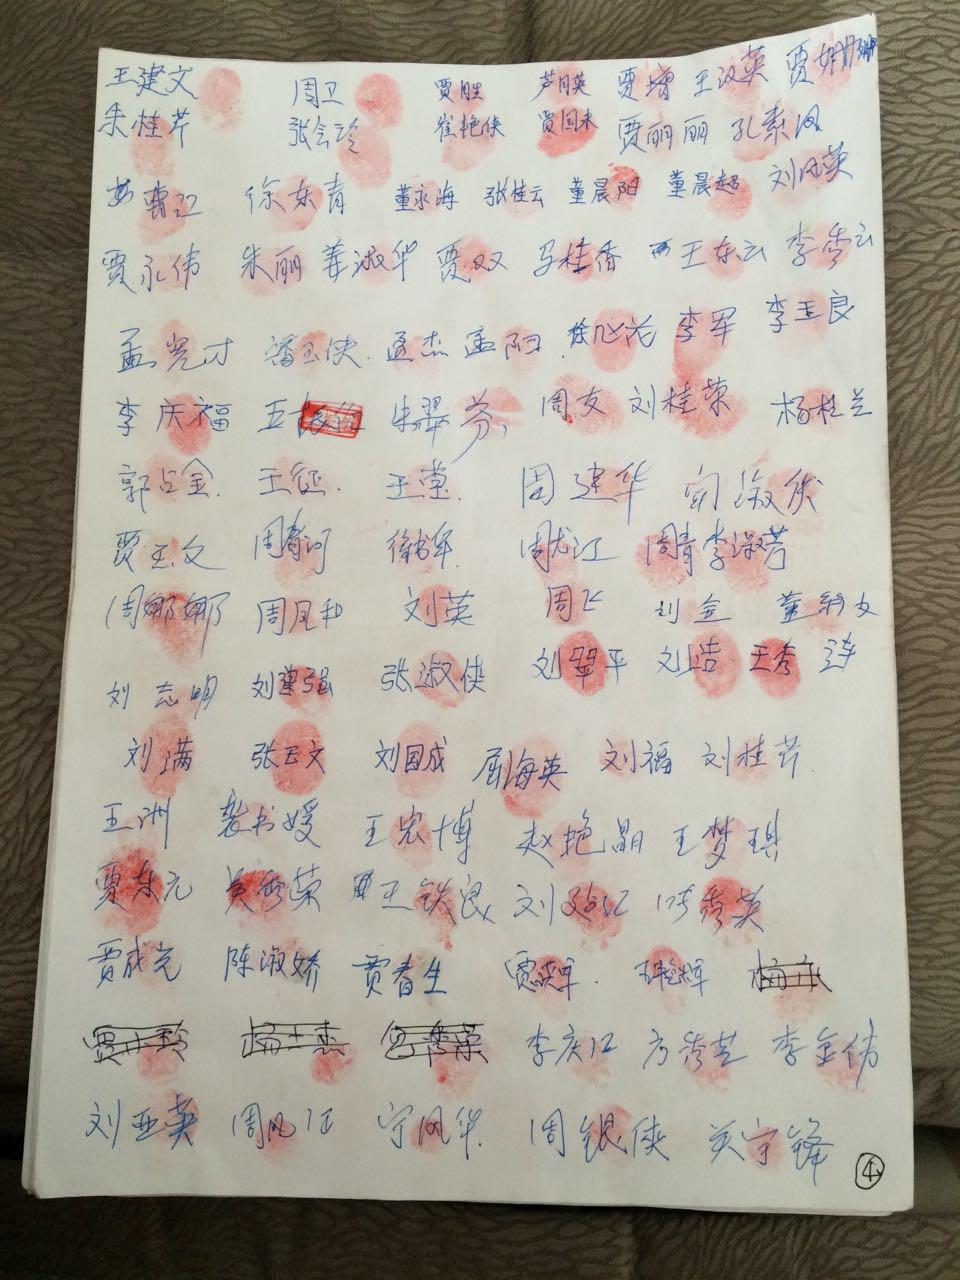 王建文 周卫 贾胜 芦月英 贾增 王汉英 贾娟娟
朱桂芹 张会玲 崔艳侠 贾国来 贾丽丽 孔素凤
徐东青 董永海 张桂云 董晨阳 董晨超 刘凤英
贾永伟 朱丽 姜淑华 贾双 马桂香 王东云 李秀云
孟宪才 潘玉侠 孟杰 孟阳 李军 李玉良
李庆福 朱翠芬 周友 刘桂荣 杨桂兰
郭占金 王征 王莹 周建华 淑侠
贾玉文 周寿河 周龙江 周青 李淑芳
周娜娜 周凤和 刘英 周飞 刘金
刘志明 刘建强 张淑侠 刘翠平 刘浩 王秀莲
刘满 张玉文 刘国成 屈海英 刘福 刘桂芹
王洲 裴书媛 王宏博 赵艳晶 王梦琪
贾东元 吴秀荣 王铁良 刘 陈秀英
贾成元 陈淑娇 贾春生
李庆江 方秀芝 李金伟
刘亚英 周凤江 宁凤华 周银侠 关宇锋
④